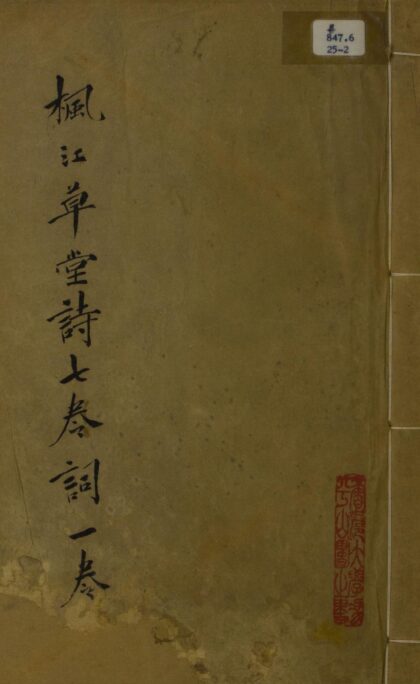 847.6
25-2
楓江草堂詩七卷詞一卷